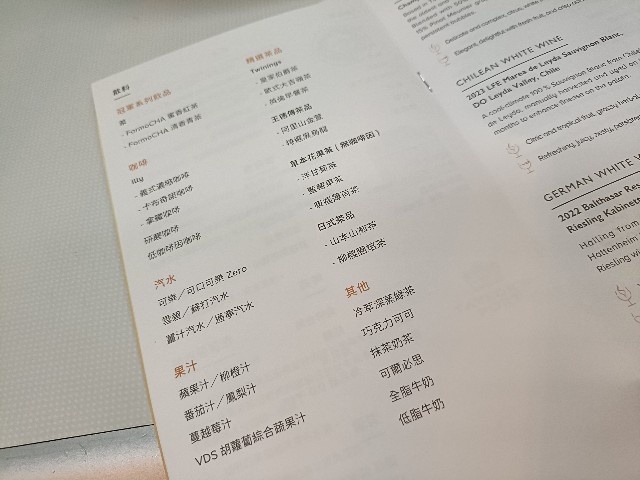 飲料
冠軍系列飲品
茶
· FormoCHA 蜜香紅茶
· FormoCHA 清香青茶
咖啡
illy
· 義式濃縮咖啡
· 卡布奇諾咖啡
· 拿鐵咖啡
研磨咖啡
低咖啡因咖啡
汽水
可樂／可口可樂 Zero
雪碧／蘇打汽水
薑汁汽水／通寧汽水
果汁
蘋果汁／柳橙汁
番茄汁／鳳梨汁
蔓越莓汁
VDS 胡蘿蔔綜合蔬果汁
精選茶品
Twinings
· 皇家伯爵茶
· 歐式大吉嶺茶
· 英倫早餐茶
王德傳茶品
· 阿里山金萱
草本花果茶（無咖啡因）
· 洋甘菊茶
日式茶品
· 山本山煎茶
其他
冷萃深蒸綠茶
巧克力可可
抹茶奶茶
可爾必思
全脂牛奶
低脂牛奶
CHILEAN WHITE WINE
2023 LFE Marea de Leyda Sauvignon Blanc,
DO Leyda Valley, Chile
A cool-climate 100 % Sauvignon Blanc from Chile
de Leyda, manually harvested and aged on
months to enhance freshness on the palate.
Citric and tropical fruit, grassy,
Refreshing, juicy, zesty,
GERMAN WHITE W
2022 Balthasar Res
Riesling Kabinett
Hailing from
Hattenheim
Riesling wi